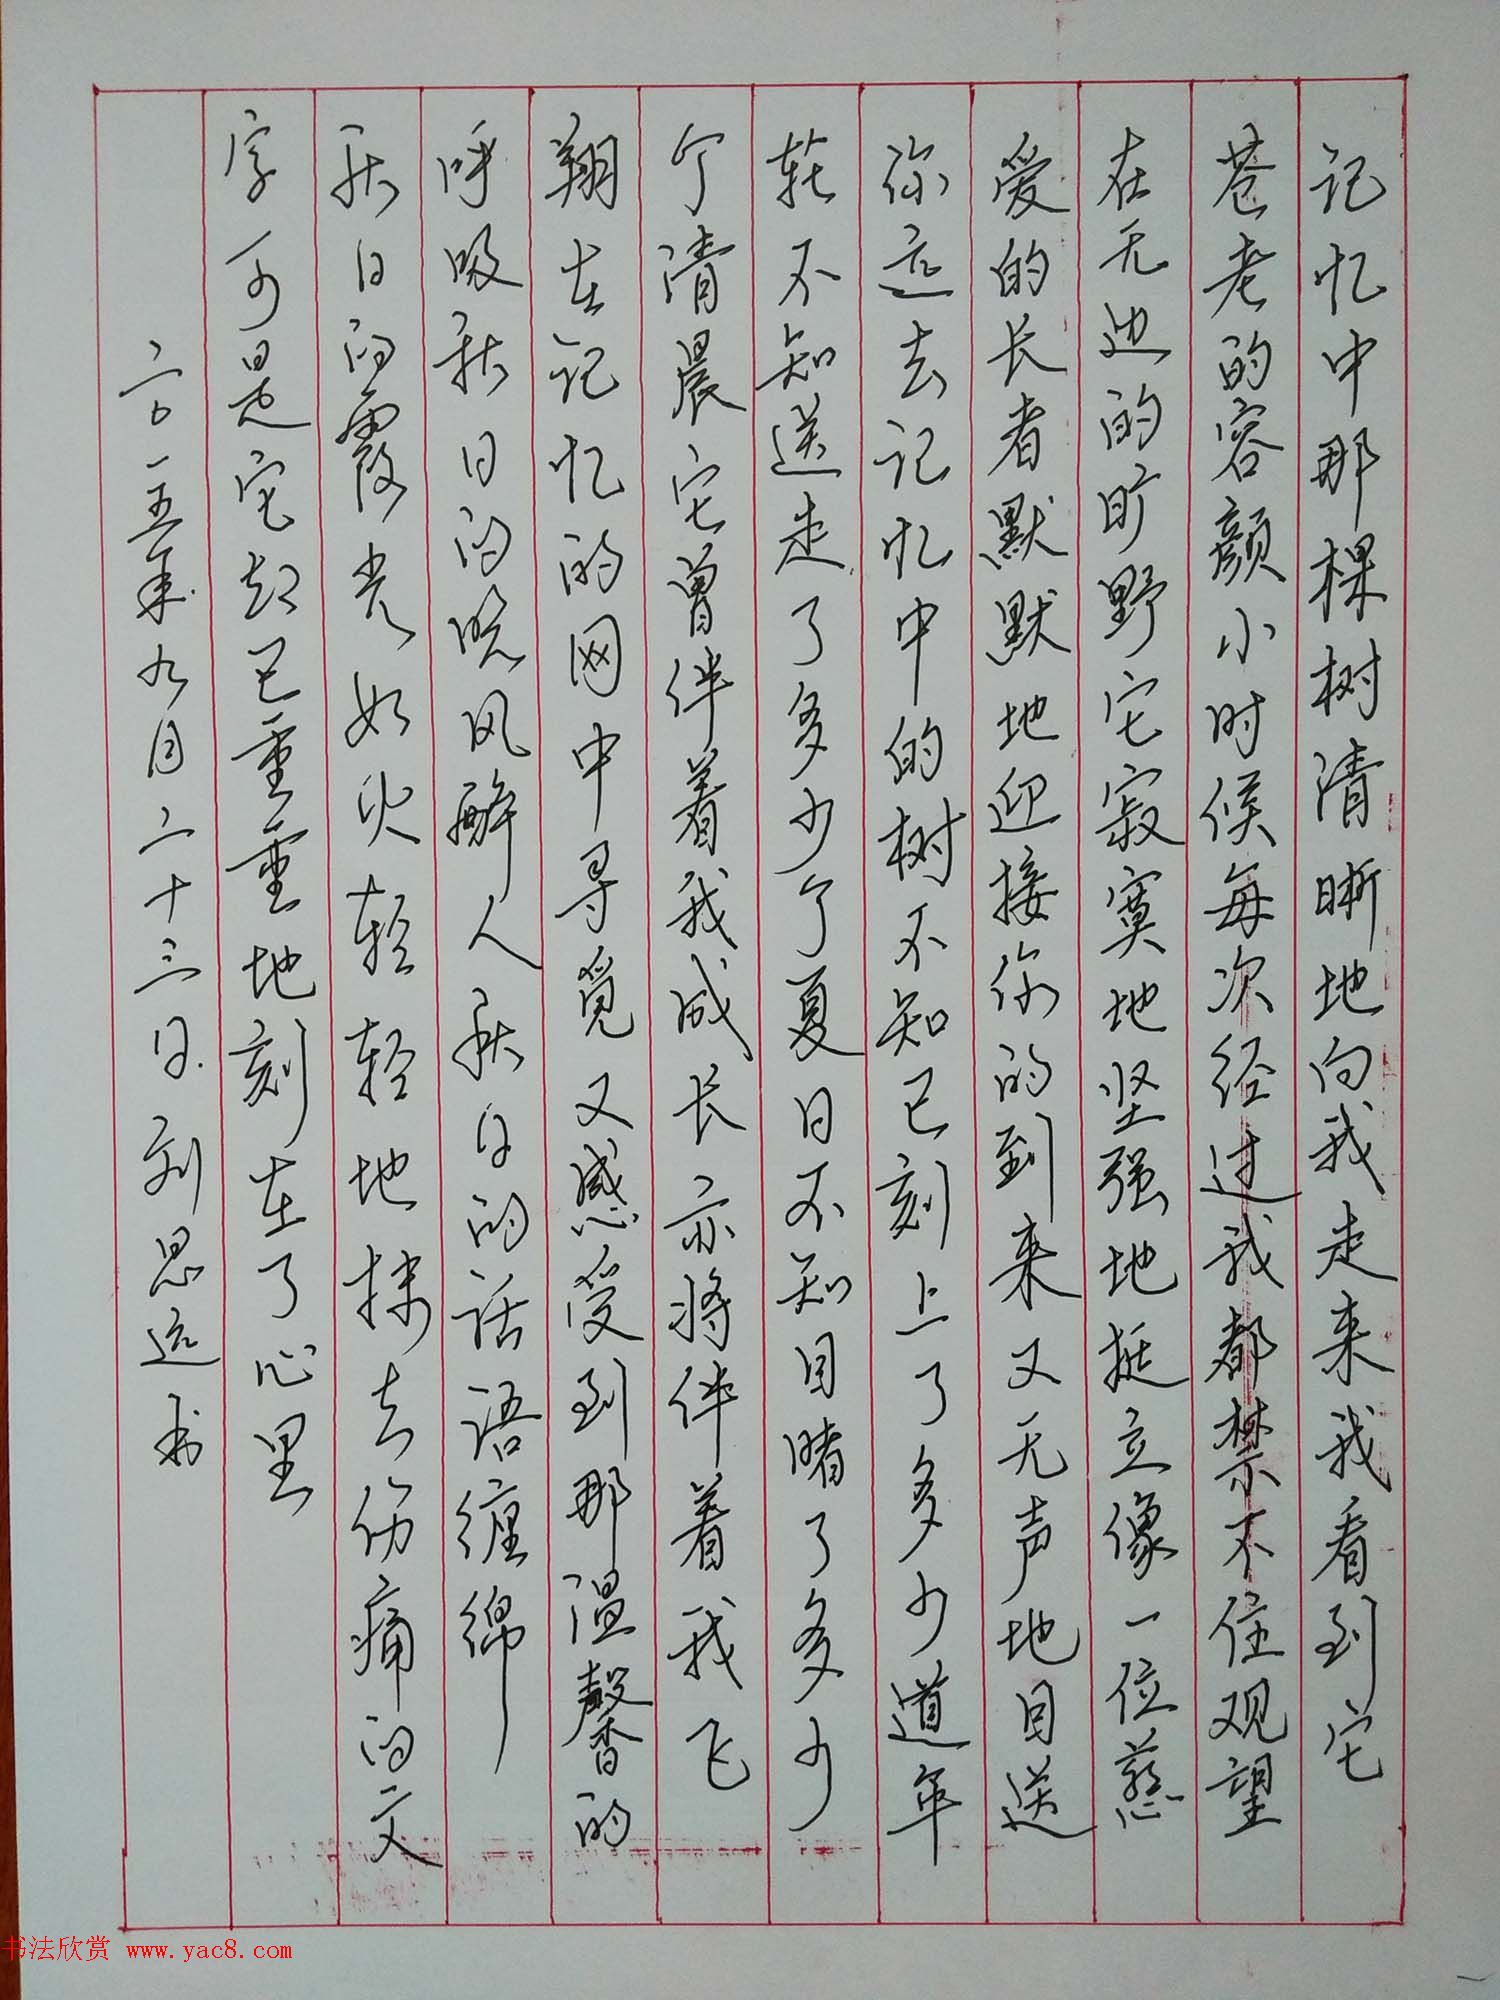 记忆中那棵树清晰地向我走来我看到它
苍老的容颜小时候每次经过我都禁不住观望
在无边的旷野它寂寞地坚强地挺立像一位慈
爱的长者默默地迎接你的到来又无声地目送
你远去记忆中的树不知已刻上了多少道年
轮不知送走了多少个夏日不知目睹了多少
个清晨它曾伴着我成长亦将伴着我飞
翔在记忆的网中寻觅又感受到那温馨的
呼吸秋日的晚风醉人秋日的话语缠绵
秋日的霞光如火轻轻地抹去伤痛的文
字可是它却已重重地刻在了心里
二〇一五年九月二十三日刘思远书
书法欣赏 www.yac8.com